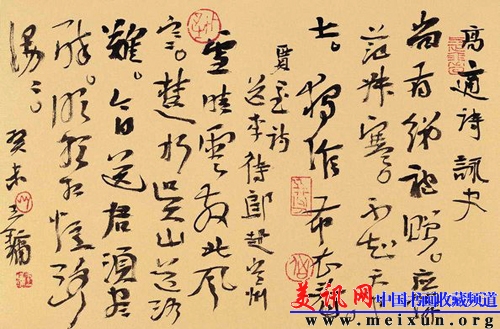 高適诗詠史
尚有绨袍赠。应怜
范叔寒。不知天下
士。犹作布衣看。
賈至诗
送李侍郎赴常州
雪晴雲散北风
寒。楚水吴山道路
難。今日送君须尽
醉。明朝相忆路
漫々。
癸未
美讯网
中国书画收藏频道
www.meixun.org